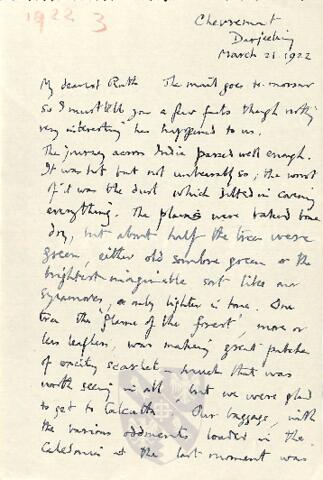 1922 3
Chevremont
Darjeeling
March 21. 1922
My dearest Ruth The mail goes to-morrow
so I must tell you a few facts though nothing
very interesting has happened to us.
The journey across India passed well enough.
It was hot but not unbearably so; the worst
of it was the dust which drifted in covering
everything. The plains were baked bone
dry, but about half the trees were
green, either old sombre green or the
brightest imaginable sort like our
sycamores, or only lighter in tone. One
tree 'the flame of the forest', more or
less leafless, was making great patches
of scarlet - much that was
worth seeing in all, but we were glad
to get to Calcutta. Our baggage, with
the various oddments loaded in the
Caledonia at the last moment was